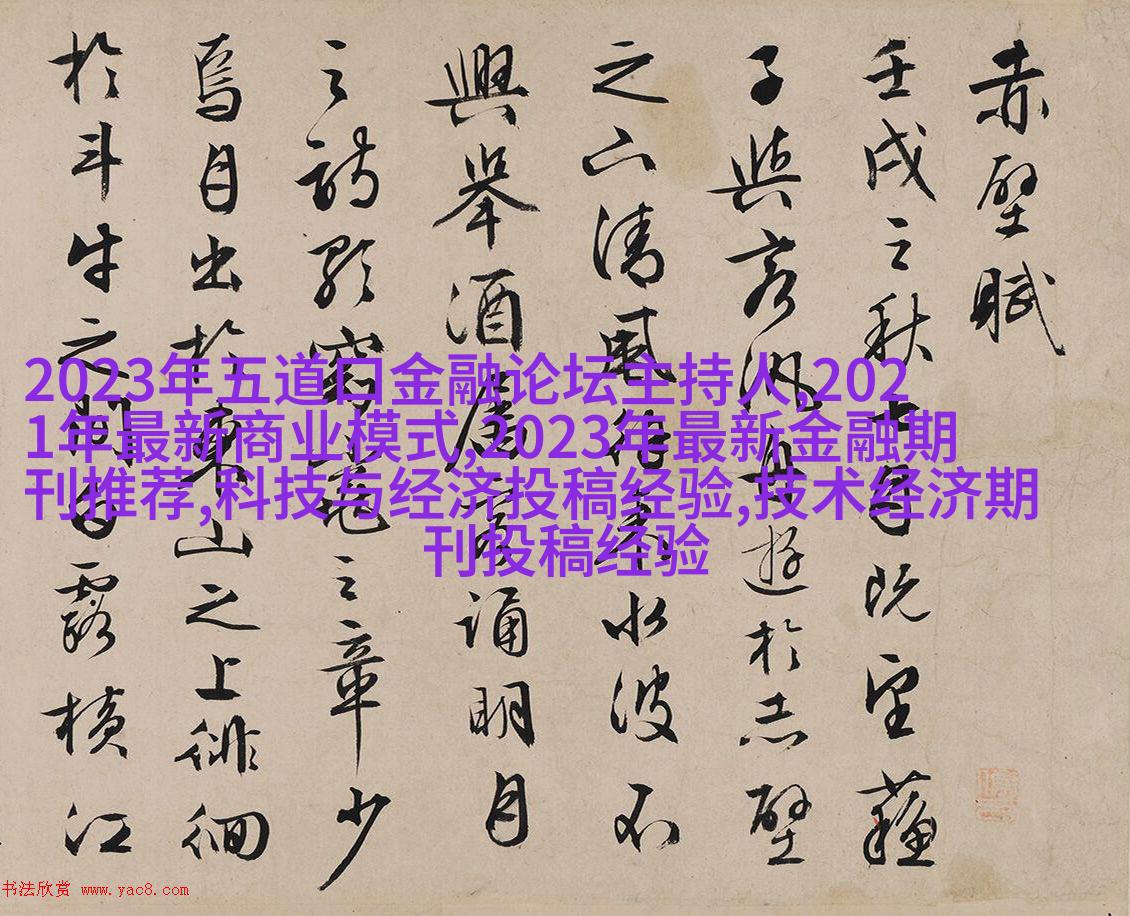 赤壁賦
壬戌之秋七月既望蘇
子與客汎舟遊於赤壁
之下清風徐來水波不
興舉酒屬客誦明月
之詩歌窈窕之章少
焉月出於東山之上徘徊
於斗牛之間白露橫江
2023年五道口金融论坛主持人,202
1年最新商业模式,2023年最新金融期
刊推荐,科技与经济投稿经验,技术经济期
刊投稿经验
书法欣赏 www.yac8.com